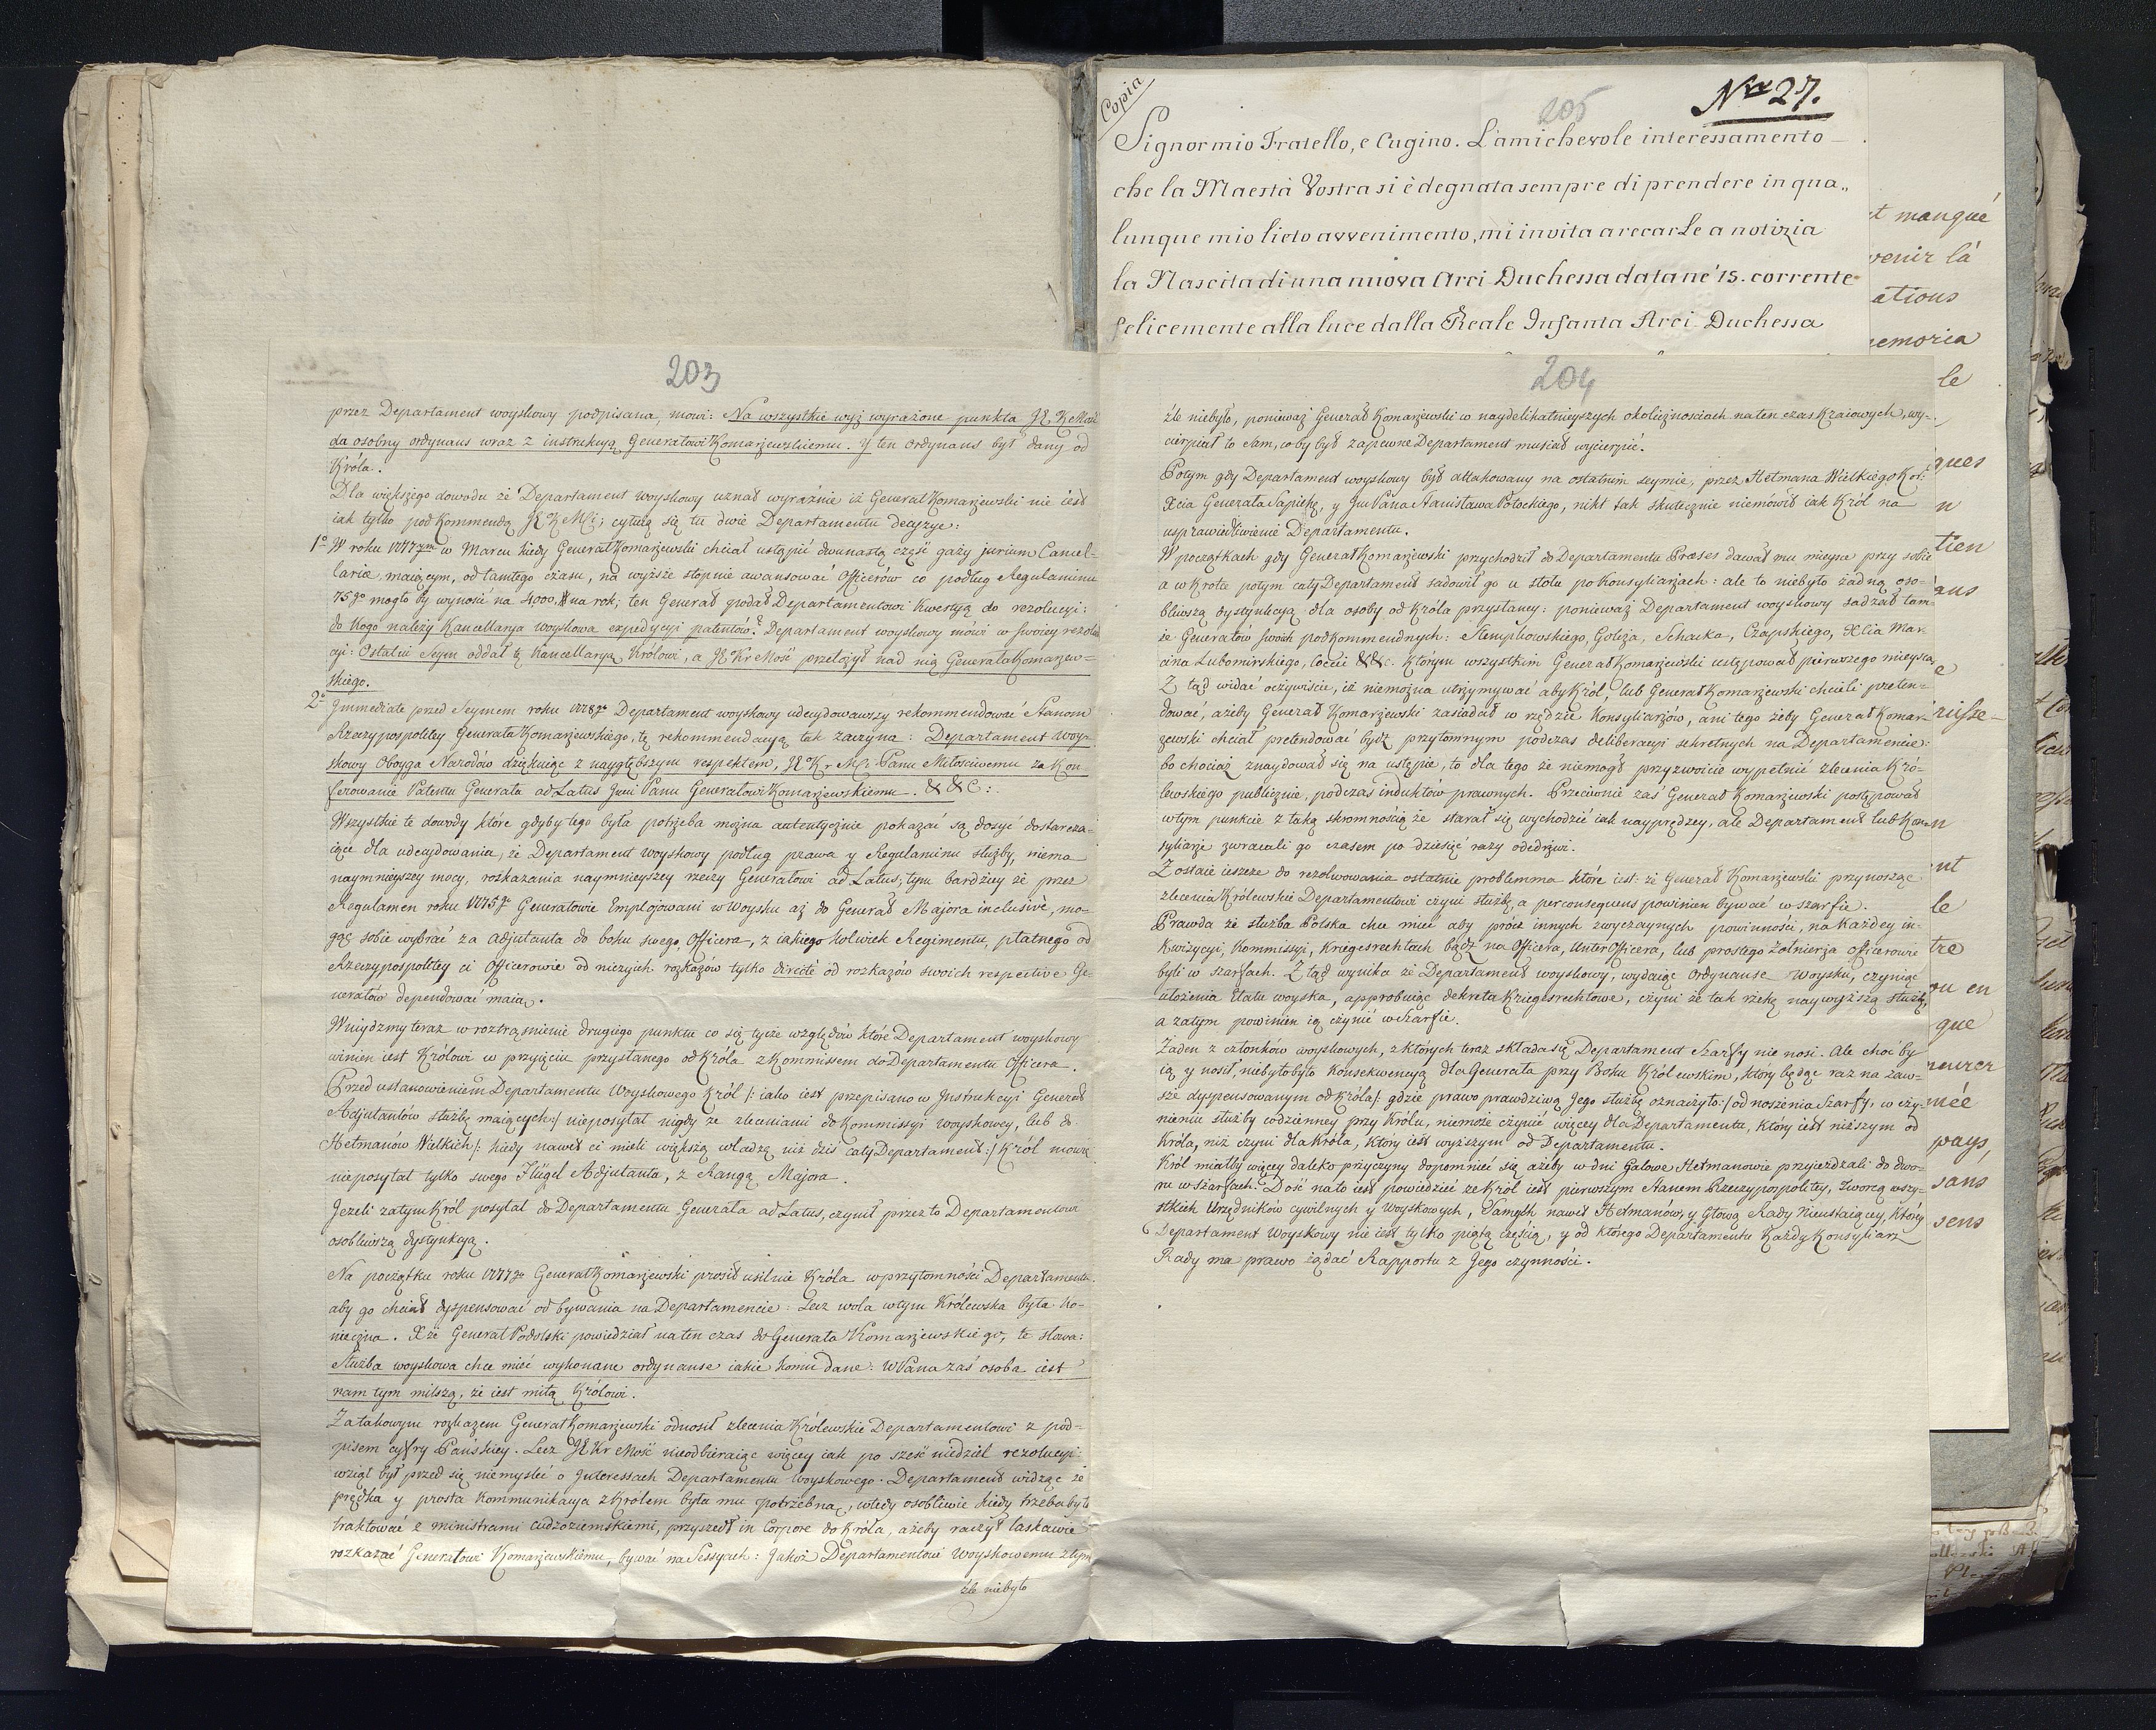 203
przez Departament woyskowy podpisana, mowi: Na wszystkie wyż wyrażone punkta JKMość
da osobny ordynans wraz z instrukcyą Generałowi Komarzewskiemu. Y ten ordynans był dany od
Króla.
Dla większego dowodu że Departament Woyskowy uznał wyraźnie iż Generał Komarzewski nie iest
iak tylko pod kommendą JKMCi; cytuią się tu dwie Departamentu decyzye:
1o W roku 1777ym w Marcu kiedy Generał Komarzewski chciał ustąpić dwunastą część gaży jurium Cancel-
lariæ maiącym, od tamtego czasu, na wyższe stopnie awansować Officerów co podług Regulaminu
75go mogło by wynosić na 4000. # na rok; ten Generał podał Departamentowi kwestyą do rezolucyi:
do kogo należy Kancellarya woyskowa expedycyi patentów? Departament woyskowy mówi w swoiey rezolu
cyi: Ostatni Seym oddał tę Kancellaryą Królowi, a JKrMość przełożył nad nią Generała Komarzew=
skiego.
2o Immediate przed Seymem roku 1778go Departament woyskowy udecydowawszy rekommendować Stanom
Rzeczypospolitey Generała Komarzewskiego, tę rekommendacyą tak zaczyna: Departament Woy-
skowy Oboyga Narodów dziękuiąc z naygłębszym respektem, JKrMCi Panu Miłościwemu za Kon
ferowanie Patentu Generała ad Latus Jmci Panu Generałowi Komarzewskiemu. & & C:
Wszystkie te dowody które gdyby tego była potrzeba można autentycznie pokazać są dosyć dostarcza-
iące dla udecydowania, że Departament Woyskowy podług prawa y Regulaminu służby, niema
naymnieyszey mocy, rozkazania naymnieyszey rzeczy Generałowi ad Latus; tym bardziey że przez
Regulamen roku 1775go Generałowie Emplojowani w Woysku aż do Generał Majora inclusivè, mo-
gąc sobie wybrać za Adjutanta do boku swego, Officera, z iakiego kolwiek Regimentu, płatnego od
Rzeczypospolitey ci Officerowie od niczyich rozkazów tylko directè od rozkazów swoich respective Ge-
nerałów dependować maią.
Wniydzmy teraz w roztrząśnienie drugiego punktu co się tycze względów które Departament woyskowy
winien iest Królowi w przyięciu przysłanego od Króla z Kommissem do Departamentu Officera.
Przed ustanowieniem Departamentu Woyskowego Król /: iako iest przepisano w Instrukcyi Generał
Adjutantów służbę maiących:/ nieposyłał nigdy ze zleceniami do Kommissyi Woyskowey, lub do
Hetmanów Wielkich /: kiedy nawet ci mieli większą władzą niż dziś cały Departament:/ Król mowię
nieposyłał tylko swego Flügel Adjutanta, z Rangą Majora.
Jeżeli zatym Król posyłał do Departamentu Generała ad Latus, czynił przez to Departamentowi
osobliwszą dystynkcyą.
Na początku roku 1777go Generał Komarzewski prosił usilnie Króla w przytomności Departamentu
aby go chciał dyspensować od bywania na Departamencie: Lecz wola w tym Królewska była ko-
nieczna. Xże Generał Podolski powiedział na ten czas do Generała Komarzewskiego, te słowa:
Służba woyskowa chce mieć wykonane ordynanse iakie komu dane: WPana zaś osoba iest
nam tym milszą, że iest miłą Królowi.
Za takowym rozkazem Generał Komarzewski odnosił zlecenia Królewskie Departamentowi z pod=
pisem cyfry Pańskiey. Lecz JKrMość nieodbieraiąc więcey iak po sześć niedziel rezolucyi:
wziął był przed się niemyśleć o Interessach Departamentu Woyskowego. Departament widząc że
prędka y prosta kommunikacya z Królem była mu potrzebną, wtedy osobliwie kiedy trzeba było
traktować z ministrami cudzoziemskiemi, przyszedł in Corpore do Króla, ażeby raczył łaskawie
rozkazać Generałowi Komarzewskiemu, bywać na Sessyach: Jakoż Departamentowi Woyskowemu z tym
źle niebyło
Copia
205
Nro 27.
Signor mio Fratello, e Cugino. L'amichevole interessamento
che la Maestà Vostra si è degnata sempre di prendere in qua„
lunque mio lieto avvenimento, mi invita a recarLe a notizia
la Nascita di una nuova Arci Duchessa data ne' 15. corrente
felicemente alla luce dalla Reale Infanta Arci Duchessa
204
źle niebyło, ponieważ Generał Komarzewski w naydelikatnieyszych okolicznościach na ten czas Kraiowych, wy-
cierpiał to sam, co by był zapewne Departament musiał wycierpić.
Potym gdy Departament woyskowy był attakowany na ostatnim seymie, przez Hetmana Wielkiego Kor:
Xcia Generała Sapiehę, y Jmci Pana Stanisława Potockiego, nikt tak skutecznie niemówił iak Król na
usprawiedliwienie Departamentu.
W początkach gdy Generał Komarzewski przychodził do Departamentu Præses dawał mu mieysce przy sobie
a w krotce potym cały Departament sadowił go u stołu po Konsyliarzach: ale to niebyło żadną oso-
bliwszą dystynkcyą dla osoby od Króla przysłaney: ponieważ Departament woyskowy sadzał tam-
że Generałów swoich podkommendnych: Stempkowskiego, Goltza, Schacka, Czapskiego, Xcia Mar-
cina Lubomirskiego, Coccei & & c. którym wszystkim Generał Komarzewski ustępował pierwszego mieysca.
Z tąd widać oczywiście, iż niemożna utrzymywać aby Król, lub Generał Komarzewski chcieli preten-
dować, ażeby Generał Komarzewski zasiadał w rzędzie Konsyliarzów, ani tego żeby Generał Komar-
zewski chciał pretendować bydź przytomnym podczas deliberacyi sekretnych na Departamencie:
bo chociaż znaydował się na ustępie, to dla tego że niemogł przyzwoicie wypełnić zlecenia Kró-
lewskiego publicznie, podczas induktów prawnych. Przeciwnie zaś Generał Komarzewski postępował
w tym punkcie z taką skromnością że starał się wychodzić iak nayprędzey, ale Departament lub Kon-
syliarze zwracali go czasem po dziesięć razy ode drzwi.
Zostaie ieszcze do rezolwowania ostatnie problemma które iest: że Generał Komarzewski przynosząc
zlecenia Królewskie Departamentowi czyni służbę, a per consequens powinien bywać w szarfie.
Prawda że służba Polska chce mieć aby prócz innych zwyczaynych powinności, na każdey in-
kwizycyi, kommissyi, Kriegesrechtach bądź na Officera, UnterOfficera, lub prostego żołnierza officerowie
byli w szarfach. Z tąd wynika że Departament woyskowy, wydaiąc Ordynanse Woysku, czyniąc
ułożenia Etatu woyska, approbuiąc dekreta Kriegesrechtowe, czyni że tak rzekę naywyższą służbę,
a zatym powinien ią czynić w Szarfie.
Żaden z członków woyskowych, z których teraz składa się Departament Szarfy nie nosi. Ale choćby
ią y nosił, niebyłoby to konsekwencyą dla Generała przy Boku Królewskim, który będąc raz na zaw-
sze dyspensowanym od Króla /: gdzie prawo prawdziwą Jego służbę oznaczyło:/ od noszenia Szarfy, w czy-
nieniu służby codzienney przy Królu, niemoże czynić więcey dla Departamentu, który iest niższym od
Króla, niż czyni dla Króla, który iest wyższym od Departamentu.
Król miałby więcey daleko przyczyny dopomnieć się ażeby w dni Galowe Hetmanowie przyieżdzali do dwo-
ru w szarfach. Dość na to iest powiedzieć że Król iest pierwszym Stanem Rzeczypospolitey, Tworcą wszy-
stkich Urzędników cywilnych y Woyskowych, samych nawet Hetmanów, y Głową Rady Nieustaiącey, którey
Departament Woyskowy nie iest tylko piątą częścią, y od którego Departamentu każdy Konsyliarz
Rady ma prawo żądać Rapportu z Jego czynności.
manqué
venir là
ations
memoria
le
ques
n
tien
ans
russe
n
nt
le
tre
ou en
que
pays,
sans
sens